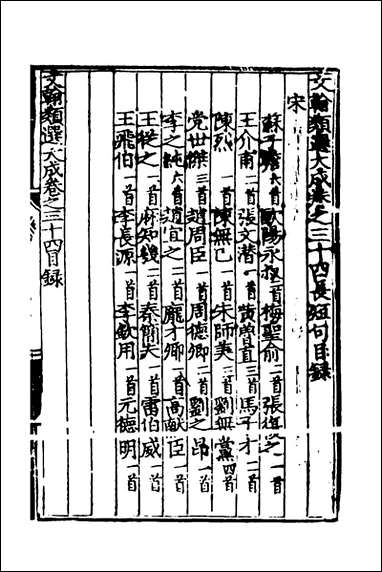 文翰類選大成卷之三十四長短句目録
宋
蘇子瞻六首 歐陽永叔一首 梅聖俞一首 張復之一首
王介甫二首 張文潛一首 黃曾直三首 馬子才二首
陳烈一首 陳無已一首 宋師美三首 劉無黨四首
党世傑三首 趙周臣一首 周德卿二首 劉之昂一首
李之純六首 趙宜之二首 龐才卿一首 高獻臣一首
王從之一首 麻知幾一首 秦簡夫一首 雷伯威一首
王飛伯一首 李長源一首 李欽用一首 元德明一首
文翰類選大成卷之三十四目録